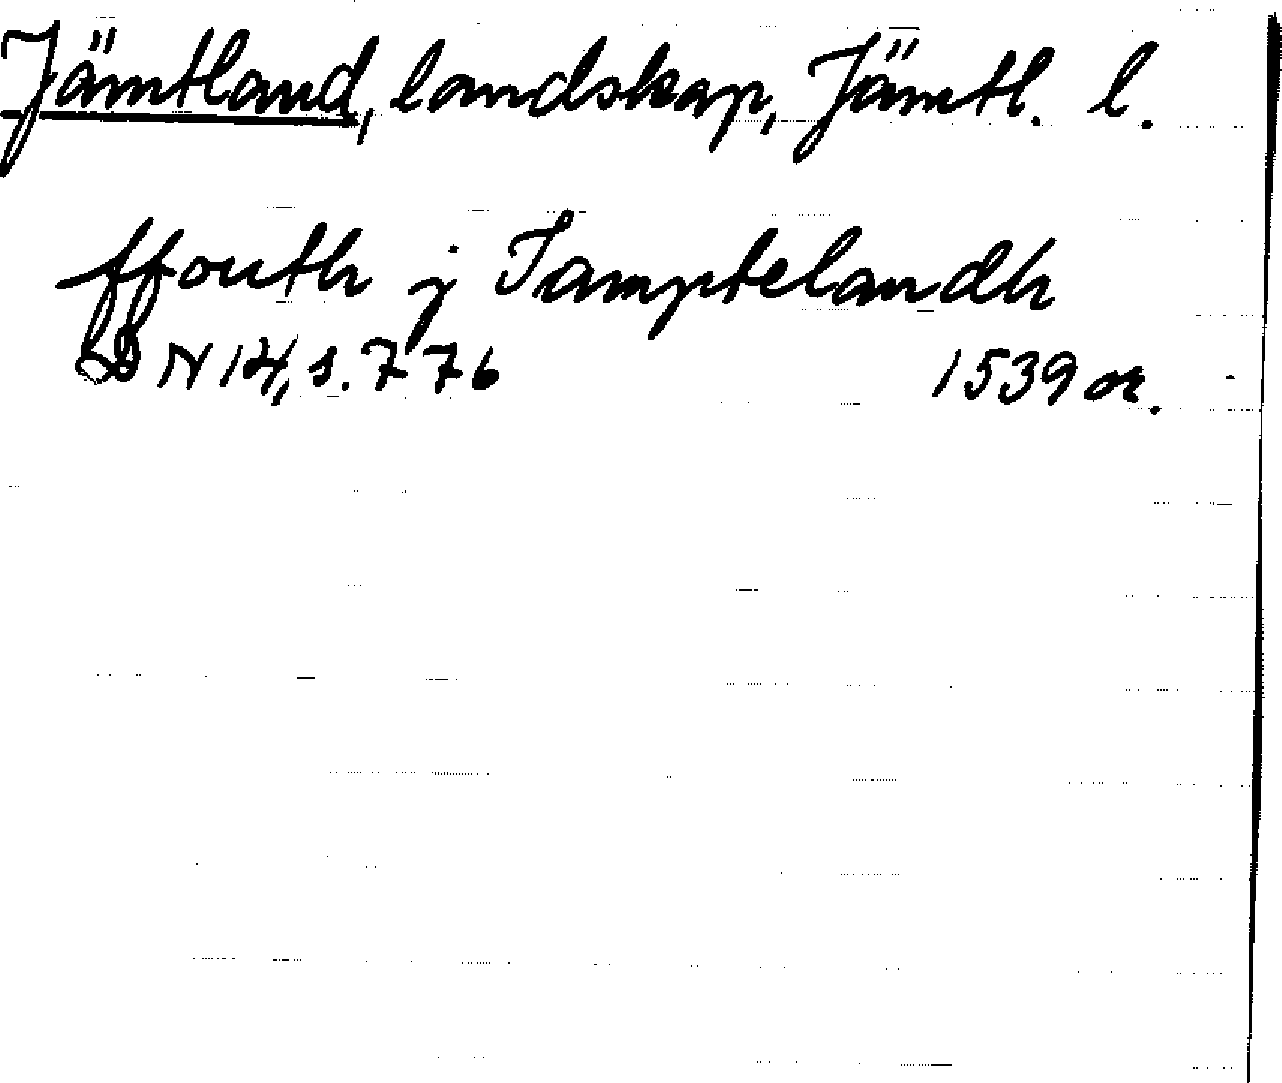 Jämtland, landskap, Jämtl. l.
ffouth j Iamptelandh
DN 14, s. 776 1539 or.